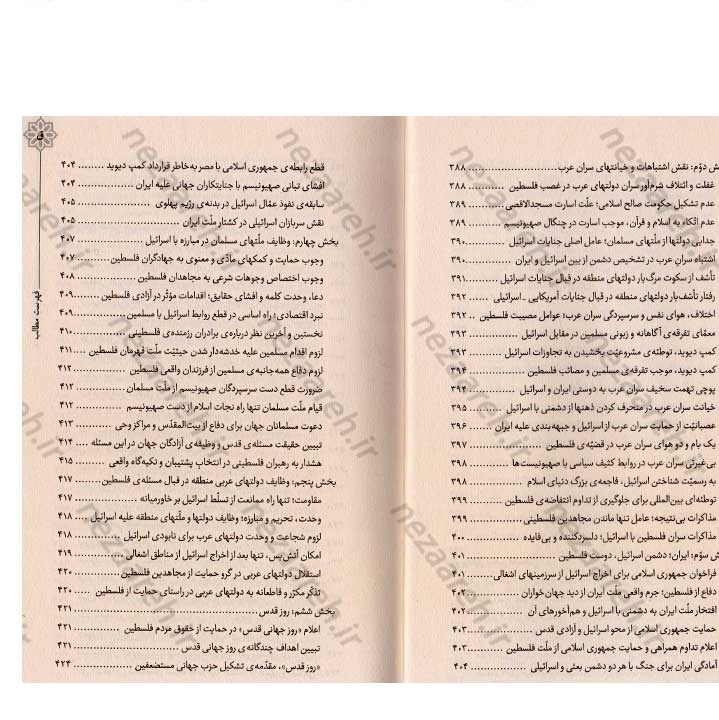 ش دوّم: نقش اشتباهات و خیانتهای سران عرب ... ۳۸۸
غفلت و ائتلاف شرم‌آور سران دولتهای عرب در غصب فلسطین ... ۳۸۸
عدم تشکیل حکومت صالح اسلامی؛ علّت اسارت مسجدالاقصی ... ۳۸۹
عدم اتّکاء به اسلام و قرآن، موجب اسارت در چنگال صهیونیسم ... ۳۸۹
جدایی دولتها از ملّتهای مسلمان؛ عامل اصلی جنایات اسرائیل ... ۳۹۰
اشتباه سران عرب در تشخیص دشمن از بین اسرائیل و ایران ... ۳۹۰
تأسّف از سکوت مرگ‌بار دولتهای منطقه در قبال جنایات اسرائیل ... ۳۹۱
رفتار تأسّف‌بار دولتهای منطقه در قبال جنایات آمریکایی ـ اسرائیلی ... ۳۹۲
اختلاف، هوای نفس و سرسپردگی سران عرب؛ عوامل مصیبت فلسطین .. ۳۹۲
معمّای تفرقه‌ی آگاهانه و زبونی مسلمین در مقابل اسرائیل ... ۳۹۳
کمپ دیوید، توطئه‌ی مشروعیّت بخشیدن به تجاوزات اسرائیل ... ۳۹۳
کمپ دیوید، موجب تفرقه‌ی مسلمین و مصائب فلسطین ... ۳۹۴
پوچی تهمت سخیف سران عرب به دوستی ایران و اسرائیل ... ۳۹۴
خیانت سران عرب در منحرف کردن ذهنها از دشمنی با اسرائیل ... ۳۹۵
عصبانیّت از حمایت سران عرب از اسرائیل و جبهه‌بندی علیه ایران ... ۳۹۶
یک بام و دو هوای سران عرب در قضیّه‌ی فلسطین ... ۳۹۷
بی‌غیرتی سران عرب در روابط کثیف سیاسی با صهیونیست‌ها ... ۳۹۸
به رسمیّت شناختن اسرائیل، فاجعه‌ی بزرگ دنیای اسلام ... ۳۹۸
توطئه‌ای بین‌المللی برای جلوگیری از تداوم انتفاضه‌ی فلسطین ... ۳۹۹
مذاکرات بی‌نتیجه؛ عامل تنها ماندن مجاهدین فلسطینی ... ۳۹۹
مذاکرات سران فلسطین با اسرائیل؛ دلسردکننده و بی‌فایده ... ۴۰۰
ش سوّم: ایران؛ دشمن اسرائیل، دوست فلسطین ... ۴۰۱
فراخوان جمهوری اسلامی برای اخراج اسرائیل از سرزمینهای اشغالی ... ۴۰۱
دفاع از فلسطین؛ جرم واقعی ملّت ایران از دید جهان خواران ... ۴۰۲
افتخار ملّت ایران به دشمنی با اسرائیل و هم‌آخورهای آن ... ۴۰۲
حمایت جمهوری اسلامی از محو اسرائیل و آزادی قدس ... ۴۰۳
اعلام تداوم همراهی و حمایت جمهوری اسلامی از ملّت فلسطین ... ۴۰۳
آمادگی ایران برای جنگ با هر دو دشمن بعثی و اسرائیلی ... ۴۰۴
قطع رابطه‌ی جمهوری اسلامی با مصر به‌خاطر قرارداد کمپ دیوید ... ۴۰۴
افشای تبانی صهیونیسم با جنایتکاران جهانی علیه ایران ... ۴۰۴
سابقه‌ی نفوذ عمّال اسرائیل در بدنه‌ی رژیم پهلوی ... ۴۰۵
نقش سربازان اسرائیلی در کشتار ملّت ایران ... ۴۰۵
بخش چهارم: وظایف ملّتهای مسلمان در مبارزه با اسرائیل ... ۴۰۷
وجوب حمایت و کمکهای مادّی و معنوی به جهادگران فلسطین ... ۴۰۷
وجوب اختصاص وجوهات شرعی به مجاهدان فلسطین ... ۴۰۸
دعا، وحدت کلمه و افشای حقایق؛ اقدامات مؤثّر در آزادی فلسطین ... ۴۰۹
نبرد اقتصادی؛ راه اساسی در قطع روابط اسرائیل با مسلمین ... ۴۰۹
نخستین و آخرین نظر درباره‌ی برادران رزمنده‌ی فلسطینی ... ۴۱۰
لزوم اقدام مسلمین علیه خدشه‌دار شدن حیثیّت ملّت قهرمان فلسطین ... ۴۱۱
لزوم دفاع همه‌جانبه‌ی مسلمین از فرزندان واقعی فلسطین ... ۴۱۲
ضرورت قطع دست سرسپردگان صهیونیسم از ملّت مسلمان ... ۴۱۲
قیام ملّت مسلمان تنها راه نجات اسلام از دست صهیونیسم ... ۴۱۲
دعوت مسلمانان جهان برای دفاع از بیت‌المقدّس و مراکز وحی ... ۴۱۳
تبیین حقیقت مسئله‌ی قدس و وظیفه‌ی آزادگان جهان در این مسئله ... ۴۱۴
هشدار به رهبران فلسطینی در انتخاب پشتیبان و تکیه‌گاه واقعی ... ۴۱۵
بخش پنجم: وظایف دولتهای عربی منطقه در قبال مسئله‌ی فلسطین ... ۴۱۷
مقاومت؛ تنها راه ممانعت از تسلّط اسرائیل بر خاورمیانه ... ۴۱۷
وحدت، تحریم و مبارزه؛ وظایف دولتها و ملّتهای منطقه علیه اسرائیل ... ۴۱۸
لزوم شجاعت و وحدت دولتهای عرب برای نابودی اسرائیل ... ۴۱۸
امکان آتش‌بس، تنها بعد از اخراج اسرائیل از مناطق اشغالی ... ۴۱۹
استقلال دولتهای عربی در گرو حمایت از مجاهدین فلسطین ... ۴۲۰
تذکّر مکرّر و قاطعانه به دولتهای عربی در راستای حمایت از فلسطین ... ۴۲۰
بخش ششم: روز قدس ... ۴۲۱
اعلام «روز جهانی قدس» در حمایت از حقوق مردم فلسطین ... ۴۲۱
تبیین اهداف چندگانه‌ی روز جهانی قدس ... ۴۲۱
«روز قدس»، مقدّمه‌ی تشکیل حزب جهانی مستضعفین ... ۴۲۴
فهرست مطالب
nezaareh.ir